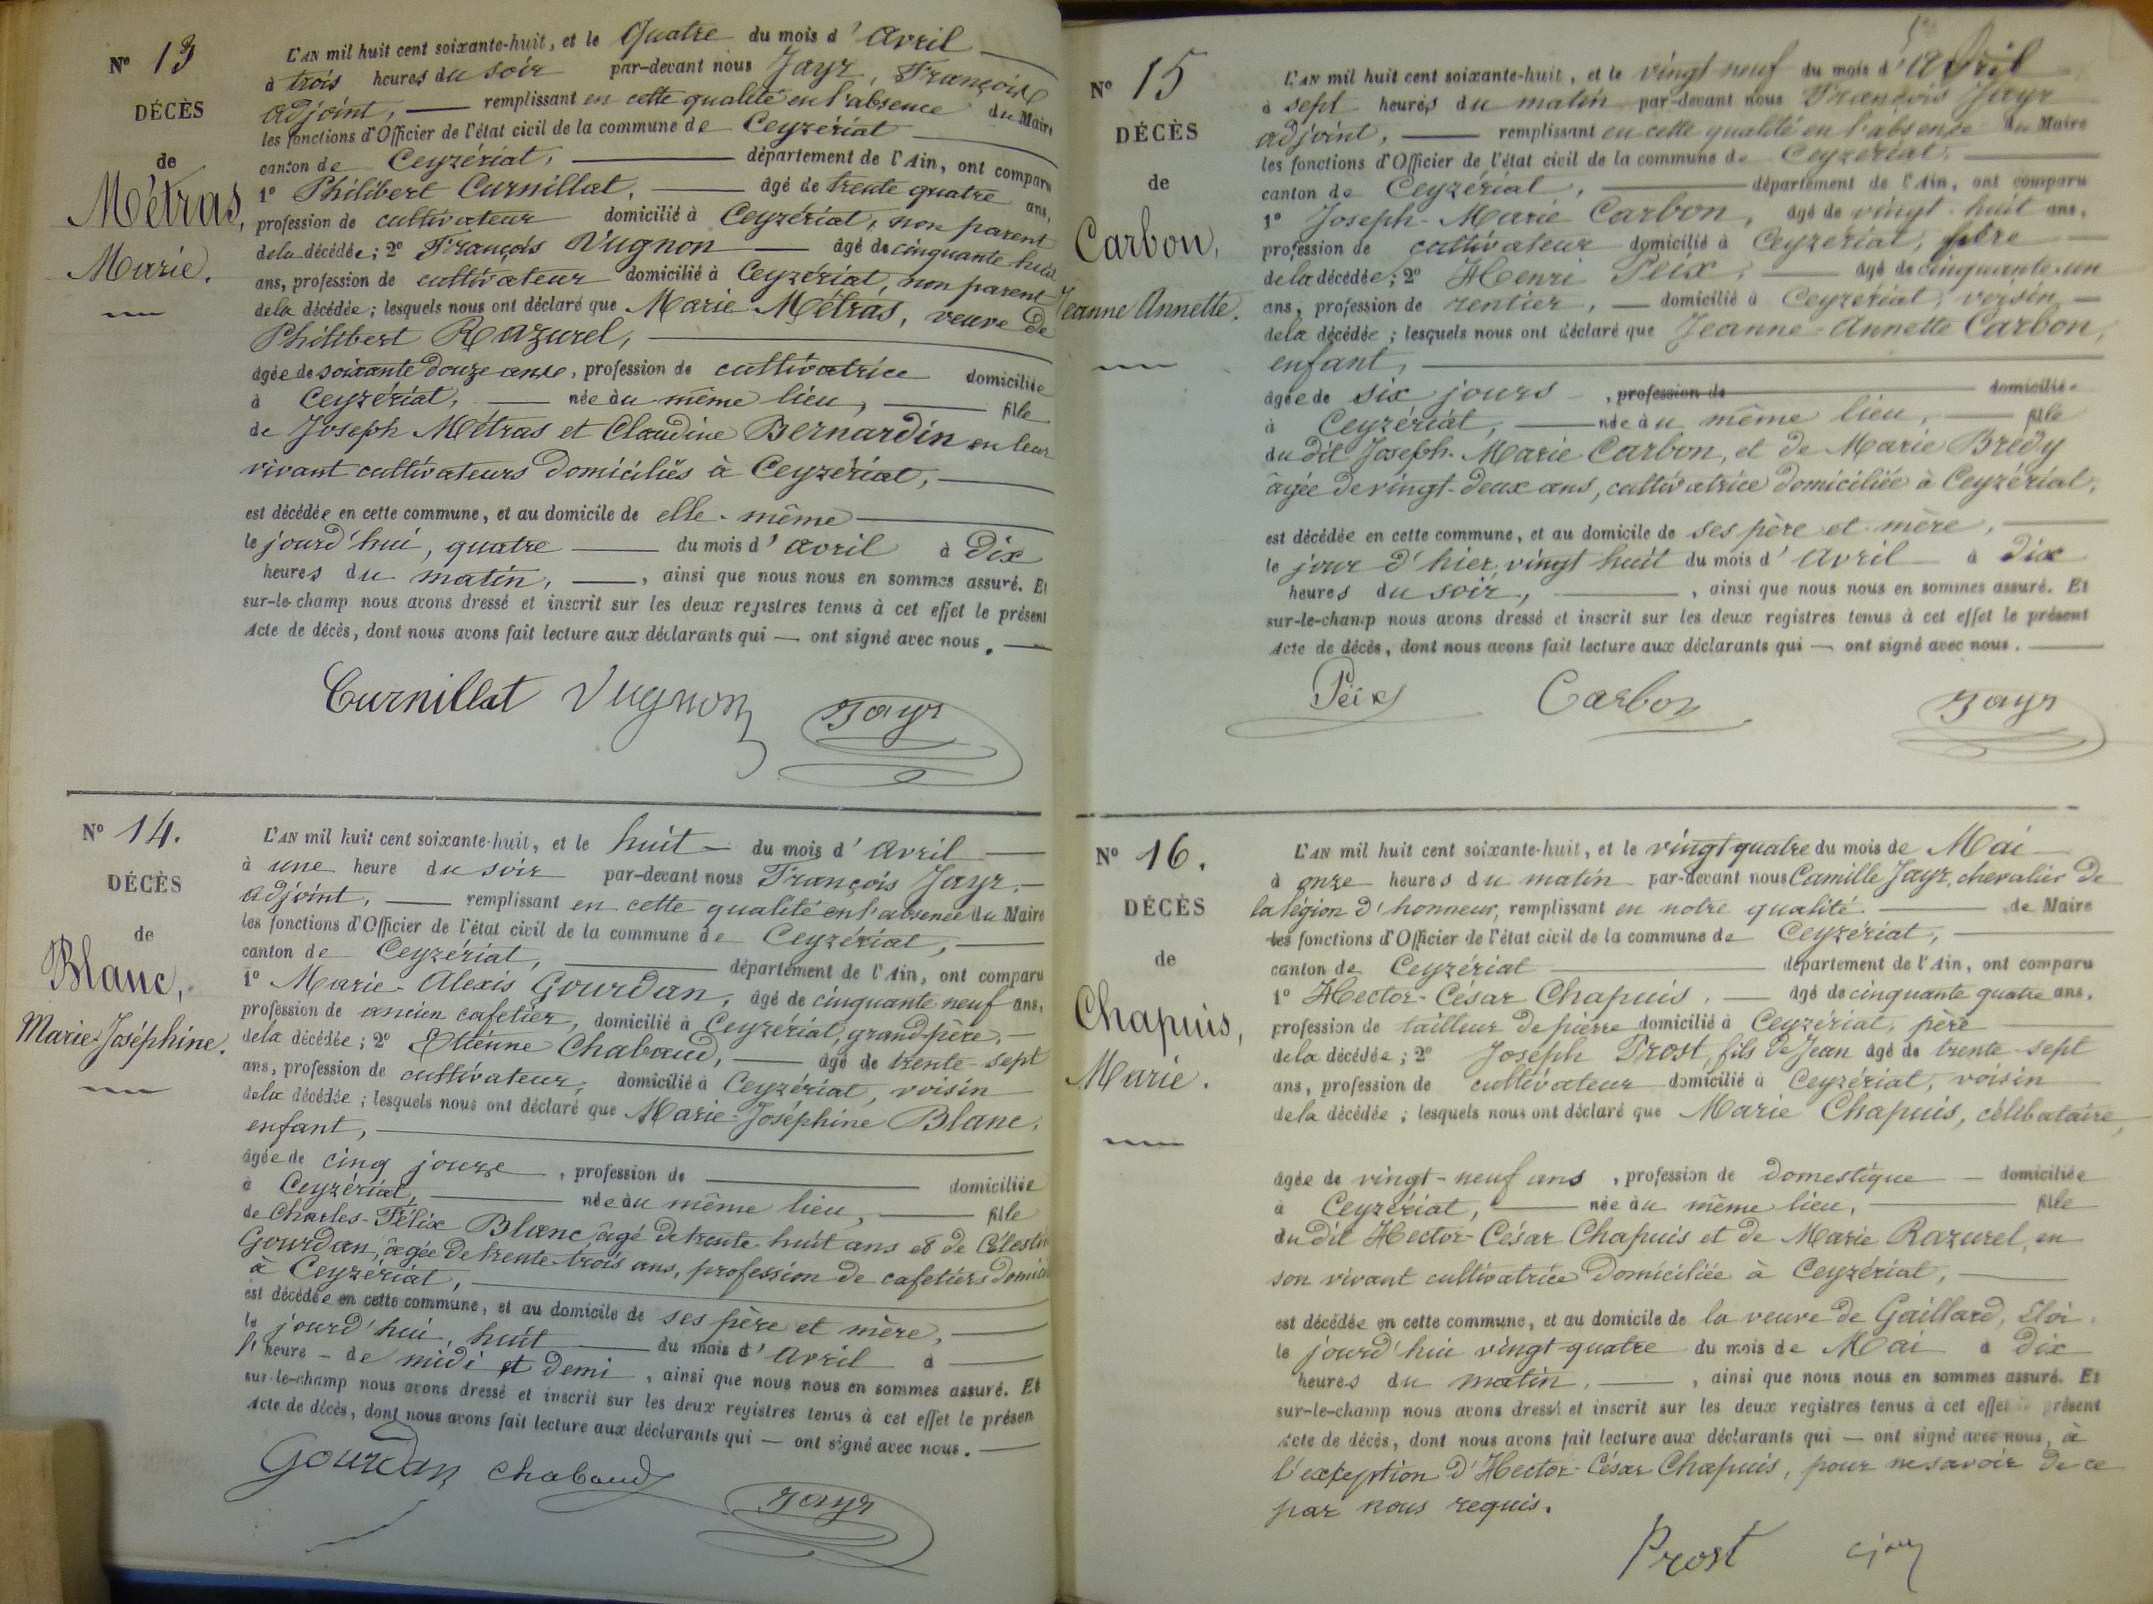 N° 13
DÉCÈS
de
Métras,
Marie.
L'AN mil huit cent soixante-huit, et le Quatre du mois d'Avril
à trois heures du soir par-devant nous Jayr, François
adjoint, remplissant en cette qualité en l'absence du Maire
les fonctions d'Officier de l'état civil de la commune de Ceyzériat
canton de Ceyzériat, département de l'Ain, ont comparu
1° Philibert Curnillat, âgé de trente quatre ans,
profession de cultivateur domicilié à Ceyzériat, non parent
de la décédée; 2° François Vugnon âgé de cinquante huit
ans, profession de cultivateur domicilié à Ceyzériat, non parent
de la décédée; lesquels nous ont déclaré que Marie Métras, veuve de
Philibert Razurel,
âgée de soixante douze ans, profession de cultivatrice domiciliée
à Ceyzériat, née au même lieu, fille
de Joseph Métras et Claudine Bernardin en leur
vivant cultivateurs domiciliés à Ceyzériat,
est décédée en cette commune, et au domicile de elle-même
le jourd'hui, quatre du mois d'avril à dix
heures du matin, , ainsi que nous nous en sommes assuré. Et
sur-le-champ nous avons dressé et inscrit sur les deux registres tenus à cet effet le présent
Acte de décès, dont nous avons fait lecture aux déclarants qui — ont signé avec nous.
Curnillat Vugnon Jayr
N° 14.
DÉCÈS
de
Blanc,
Marie-Joséphine.
L'AN mil huit cent soixante-huit, et le huit du mois d'avril
à une heure du soir par-devant nous François Jayr,
adjoint, remplissant en cette qualité en l'absence du Maire
les fonctions d'Officier de l'état civil de la commune de Ceyzériat,
canton de Ceyzériat, département de l'Ain, ont comparu
1° Marie-Alexis Gourdan, âgé de cinquante neuf ans,
profession de ancien cafetier, domicilié à Ceyzériat, grand-père,
de la décédée; 2° Etienne Chabaud, âgé de trente-sept
ans, profession de cultivateur, domicilié à Ceyzériat, voisin
de la décédée; lesquels nous ont déclaré que Marie-Joséphine Blanc,
enfant,
âgée de cinq jours, profession de domiciliée
à Ceyzériat, née au même lieu, fille
de Charles-Félix Blanc, âgé de trente huit ans et de Célestin
Gourdan, âgée de trente-trois ans, profession de cafetiers domici
à Ceyzériat,
est décédée en cette commune, et au domicile de ses père et mère,
le jourd'hui, huit du mois d'avril à
l'heure de midi et demi, ainsi que nous nous en sommes assuré. Et
sur-le-champ nous avons dressé et inscrit sur les deux registres tenus à cet effet le présen
Acte de décès, dont nous avons fait lecture aux déclarants qui — ont signé avec nous.
Gourdan Chabaud Jayr
N° 15
DÉCÈS
de
Carbon,
Jeanne Annette.
L'AN mil huit cent soixante-huit, et le vingt neuf du mois d'Avril
à sept heures du matin par-devant nous François Jayr
adjoint, remplissant en cette qualité en l'absence du Maire
les fonctions d'Officier de l'état civil de la commune de Ceyzériat,
canton de Ceyzériat, département de l'Ain, ont comparu
1° Joseph-Marie Carbon, âgé de vingt-huit ans,
profession de cultivateur domicilié à Ceyzériat, père
de la décédée; 2° Henri Peix, âgé de cinquante-un
ans, profession de rentier, domicilié à Ceyzériat, voisin
de la décédée; lesquels nous ont déclaré que Jeanne-Annette Carbon,
enfant,
âgée de six jours, profession de domiciliée
à Ceyzériat, née au même lieu, fille
du dit Joseph-Marie Carbon, et de Marie Brédy
âgée de vingt-deux ans, cultivatrice domiciliée à Ceyzériat,
est décédée en cette commune, et au domicile de ses père et mère,
le jour d'hier, vingt huit du mois d'avril à dix
heures du soir, , ainsi que nous nous en sommes assuré. Et
sur-le-champ nous avons dressé et inscrit sur les deux registres tenus à cet effet le présent
Acte de décès, dont nous avons fait lecture aux déclarants qui — ont signé avec nous.
Peix Carbon Jayr
N° 16.
DÉCÈS
de
Chapuis,
Marie.
L'AN mil huit cent soixante-huit, et le vingt quatre du mois de Mai
à onze heures du matin par-devant nous Camille Jayr, chevalier de
la légion d'honneur, remplissant en notre qualité de Maire
les fonctions d'Officier de l'état civil de la commune de Ceyzériat,
canton de Ceyzériat département de l'Ain, ont comparu
1° Hector-César Chapuis, âgé de cinquante quatre ans,
profession de tailleur de pierre domicilié à Ceyzériat, père
de la décédée; 2° Joseph Prost, fils de Jean âgé de trente-sept
ans, profession de cultivateur domicilié à Ceyzériat, voisin
de la décédée; lesquels nous ont déclaré que Marie Chapuis, célibataire,
âgée de vingt-neuf ans, profession de domestique domiciliée
à Ceyzériat, née au même lieu, fille
du dit Hector-César Chapuis et de Marie Razurel, en
son vivant cultivatrice domiciliée à Ceyzériat,
est décédée en cette commune, et au domicile de la veuve de Gaillard, Eloi,
le jourd'hui vingt-quatre du mois de Mai à dix
heures du matin, , ainsi que nous nous en sommes assuré. Et
sur-le-champ nous avons dressé et inscrit sur les deux registres tenus à cet effet le présent
Acte de décès, dont nous avons fait lecture aux déclarants qui — ont signé avec nous, à
l'exception d'Hector-César Chapuis, pour ne savoir de ce
par nous requis.
Prost